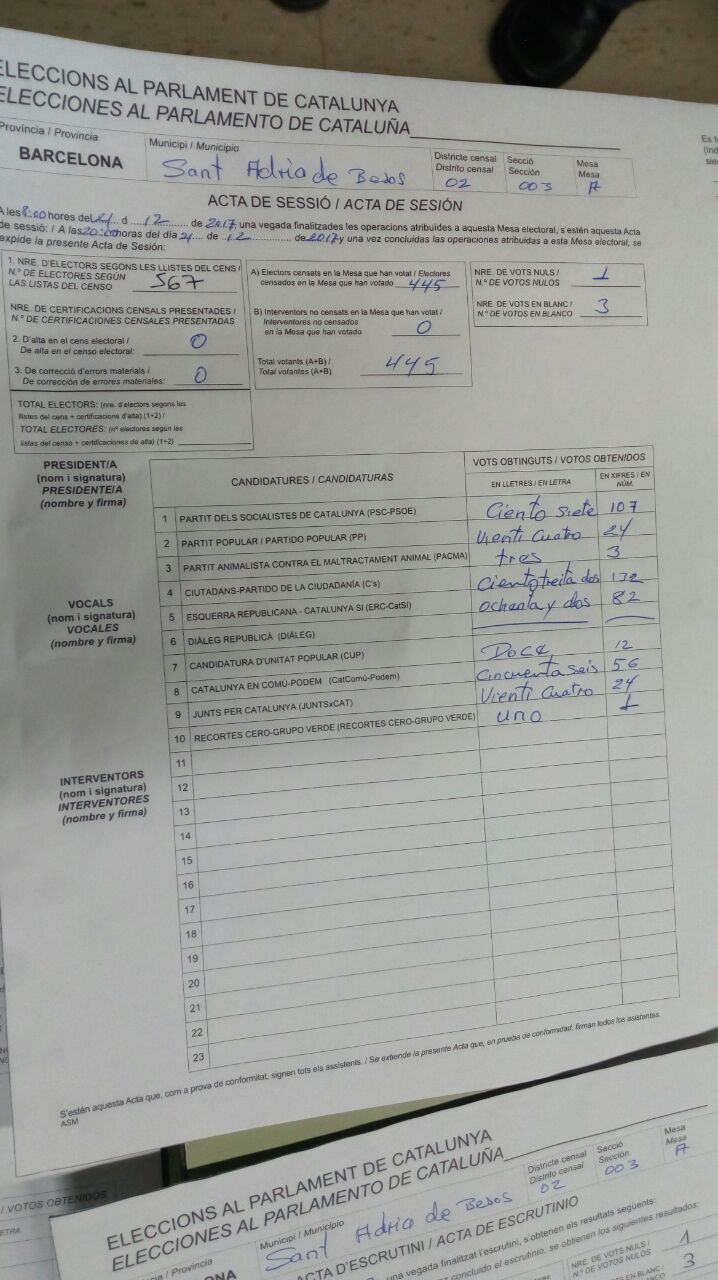 ELECCIONS AL PARLAMENT DE CATALUNYA
ELECCIONES AL PARLAMENTO DE CATALUÑA
Província / Provincia
BARCELONA
Municipi / Municipio
Sant Adria de Besos
Districte censal
Distrito censal
02
Secció
Sección
003
Mesa
Mesa
A
ACTA DE SESSIÓ / ACTA DE SESIÓN
A les 8:00 hores del 21 d 12 de 2017, una vegada finalitzades les operacions atribuïdes a aquesta Mesa electoral, s'estén aquesta Acta
de sessió: / A las 20:00 horas del día 21 de 12 de 2017 y una vez concluidas las operaciones atribuidas a esta Mesa electoral, se
expide la presente Acta de Sesión:
1. NRE. D'ELECTORS SEGONS LES LLISTES DEL CENS /
N.º DE ELECTORES SEGÚN
LAS LISTAS DEL CENSO 567
NRE. DE CERTIFICACIONS CENSALS PRESENTADES /
N.º DE CERTIFICACIONES CENSALES PRESENTADAS
2. D'alta en el cens electoral /
De alta en el censo electoral: 0
3. De correcció d'errors materials /
De corrección de errores materiales: 0
TOTAL ELECTORS: (nre. d'electors segons les
llistes del cens + certificacions d'alta) (1+2) /
TOTAL ELECTORES: (nº electores según las
listas del censo + certificaciones de alta) (1+2)
A) Electors censats en la Mesa que han votat / Electores
censados en la Mesa que han votado 445
B) Interventors no censats en la Mesa que han votat /
Interventores no censados
en la Mesa que han votado 0
Total votants (A+B) /
Total votantes (A+B) 445
NRE. DE VOTS NULS /
N.º DE VOTOS NULOS 1
NRE. DE VOTS EN BLANC /
N.º DE VOTOS EN BLANCO 3
PRESIDENT/A
(nom i signatura)
PRESIDENTE/A
(nombre y firma)
VOCALS
(nom i signatura)
VOCALES
(nombre y firma)
INTERVENTORS
(nom i signatura)
INTERVENTORES
(nombre y firma)
CANDIDATURES / CANDIDATURAS
VOTS OBTINGUTS / VOTOS OBTENIDOS
EN LLETRES / EN LETRA
EN XIFRES / EN NÚM.
1 PARTIT DELS SOCIALISTES DE CATALUNYA (PSC-PSOE) Ciento siete 107
2 PARTIT POPULAR / PARTIDO POPULAR (PP) Vienti cuatro 24
3 PARTIT ANIMALISTA CONTRA EL MALTRACTAMENT ANIMAL (PACMA) tres 3
4 CIUTADANS-PARTIDO DE LA CIUDADANÍA (C's) Ciento treita dos 132
5 ESQUERRA REPUBLICANA - CATALUNYA SI (ERC-CatSí) ochenta y dos 82
6 DIÀLEG REPUBLICÀ (DIÀLEG)
7 CANDIDATURA D'UNITAT POPULAR (CUP) Doce 12
8 CATALUNYA EN COMÚ-PODEM (CatComú-Podem) Cincuenta seis 56
9 JUNTS PER CATALUNYA (JUNTSxCAT) Vienti cuatro 24
10 RECORTES CERO-GRUPO VERDE (RECORTES CERO-GRUPO VERDE) uno 1
11
12
13
14
15
16
17
18
19
20
21
22
23
S'estén aquesta Acta que, com a prova de conformitat, signen tots els assistents. / Se extiende la presente Acta que, en prueba de conformidad, firman todos los asistentes.
ASM
/ VOTOS OBTENIDOS
ELECCIONS AL PARLAMENT DE CATALUNYA
ELECCIONES AL PARLAMENTO DE CATALUÑA
Municipi / Municipio
Sant Adria de Besos
Districte censal
Distrito censal
02
Secció
Sección
003
Mesa
Mesa
A
ACTA D'ESCRUTINI / ACTA DE ESCRUTINIO
una vegada finalitzat l'escrutini, s'obtenen els resultats següents:
concluido el escrutinio, se obtienen los siguientes resultados:
NRE. DE VOTS NULS /
N.º DE VOTOS NULOS 1
NRE. DE VOTS EN BLANC /
3